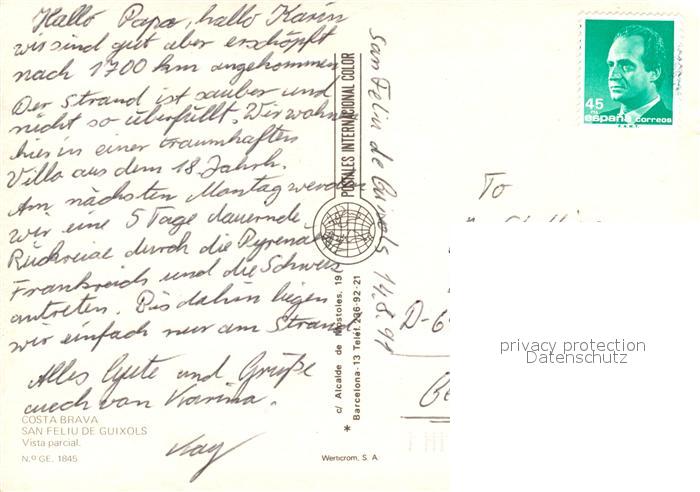 Hallo Papa, hallo Karin
wir sind gut aber erschöpft
nach 1700 km angekommen
Der Strand ist sauber und
nicht so überfüllt. Wir wohnen
hier in einer traumhaften
Villa aus dem 18. Jahrh.
Am nächsten Montag werden
wir eine 5 Tage dauernde
Rückreise durch die Pyrenäen
Frankreich und die Schweiz
antreten. Bis dahin liegen
wir einfach nur am Strand
Alles Gute und Grüße
auch von Karina.
Kay
COSTA BRAVA
SAN FELIU DE GUIXOLS
Vista parcial.
N.º GE. 1845
POSTALES INTERNACIONAL COLOR
c/ Alcalde de Mostoles, 19
Barcelona-13 Teléf. 236-92-21
*
Wertcrom, S. A.
San Feliu de Guixols 14.8.91
45
PTA
españa correos
F.N.M.T.
To
D-6
privacy protection
Datenschutz